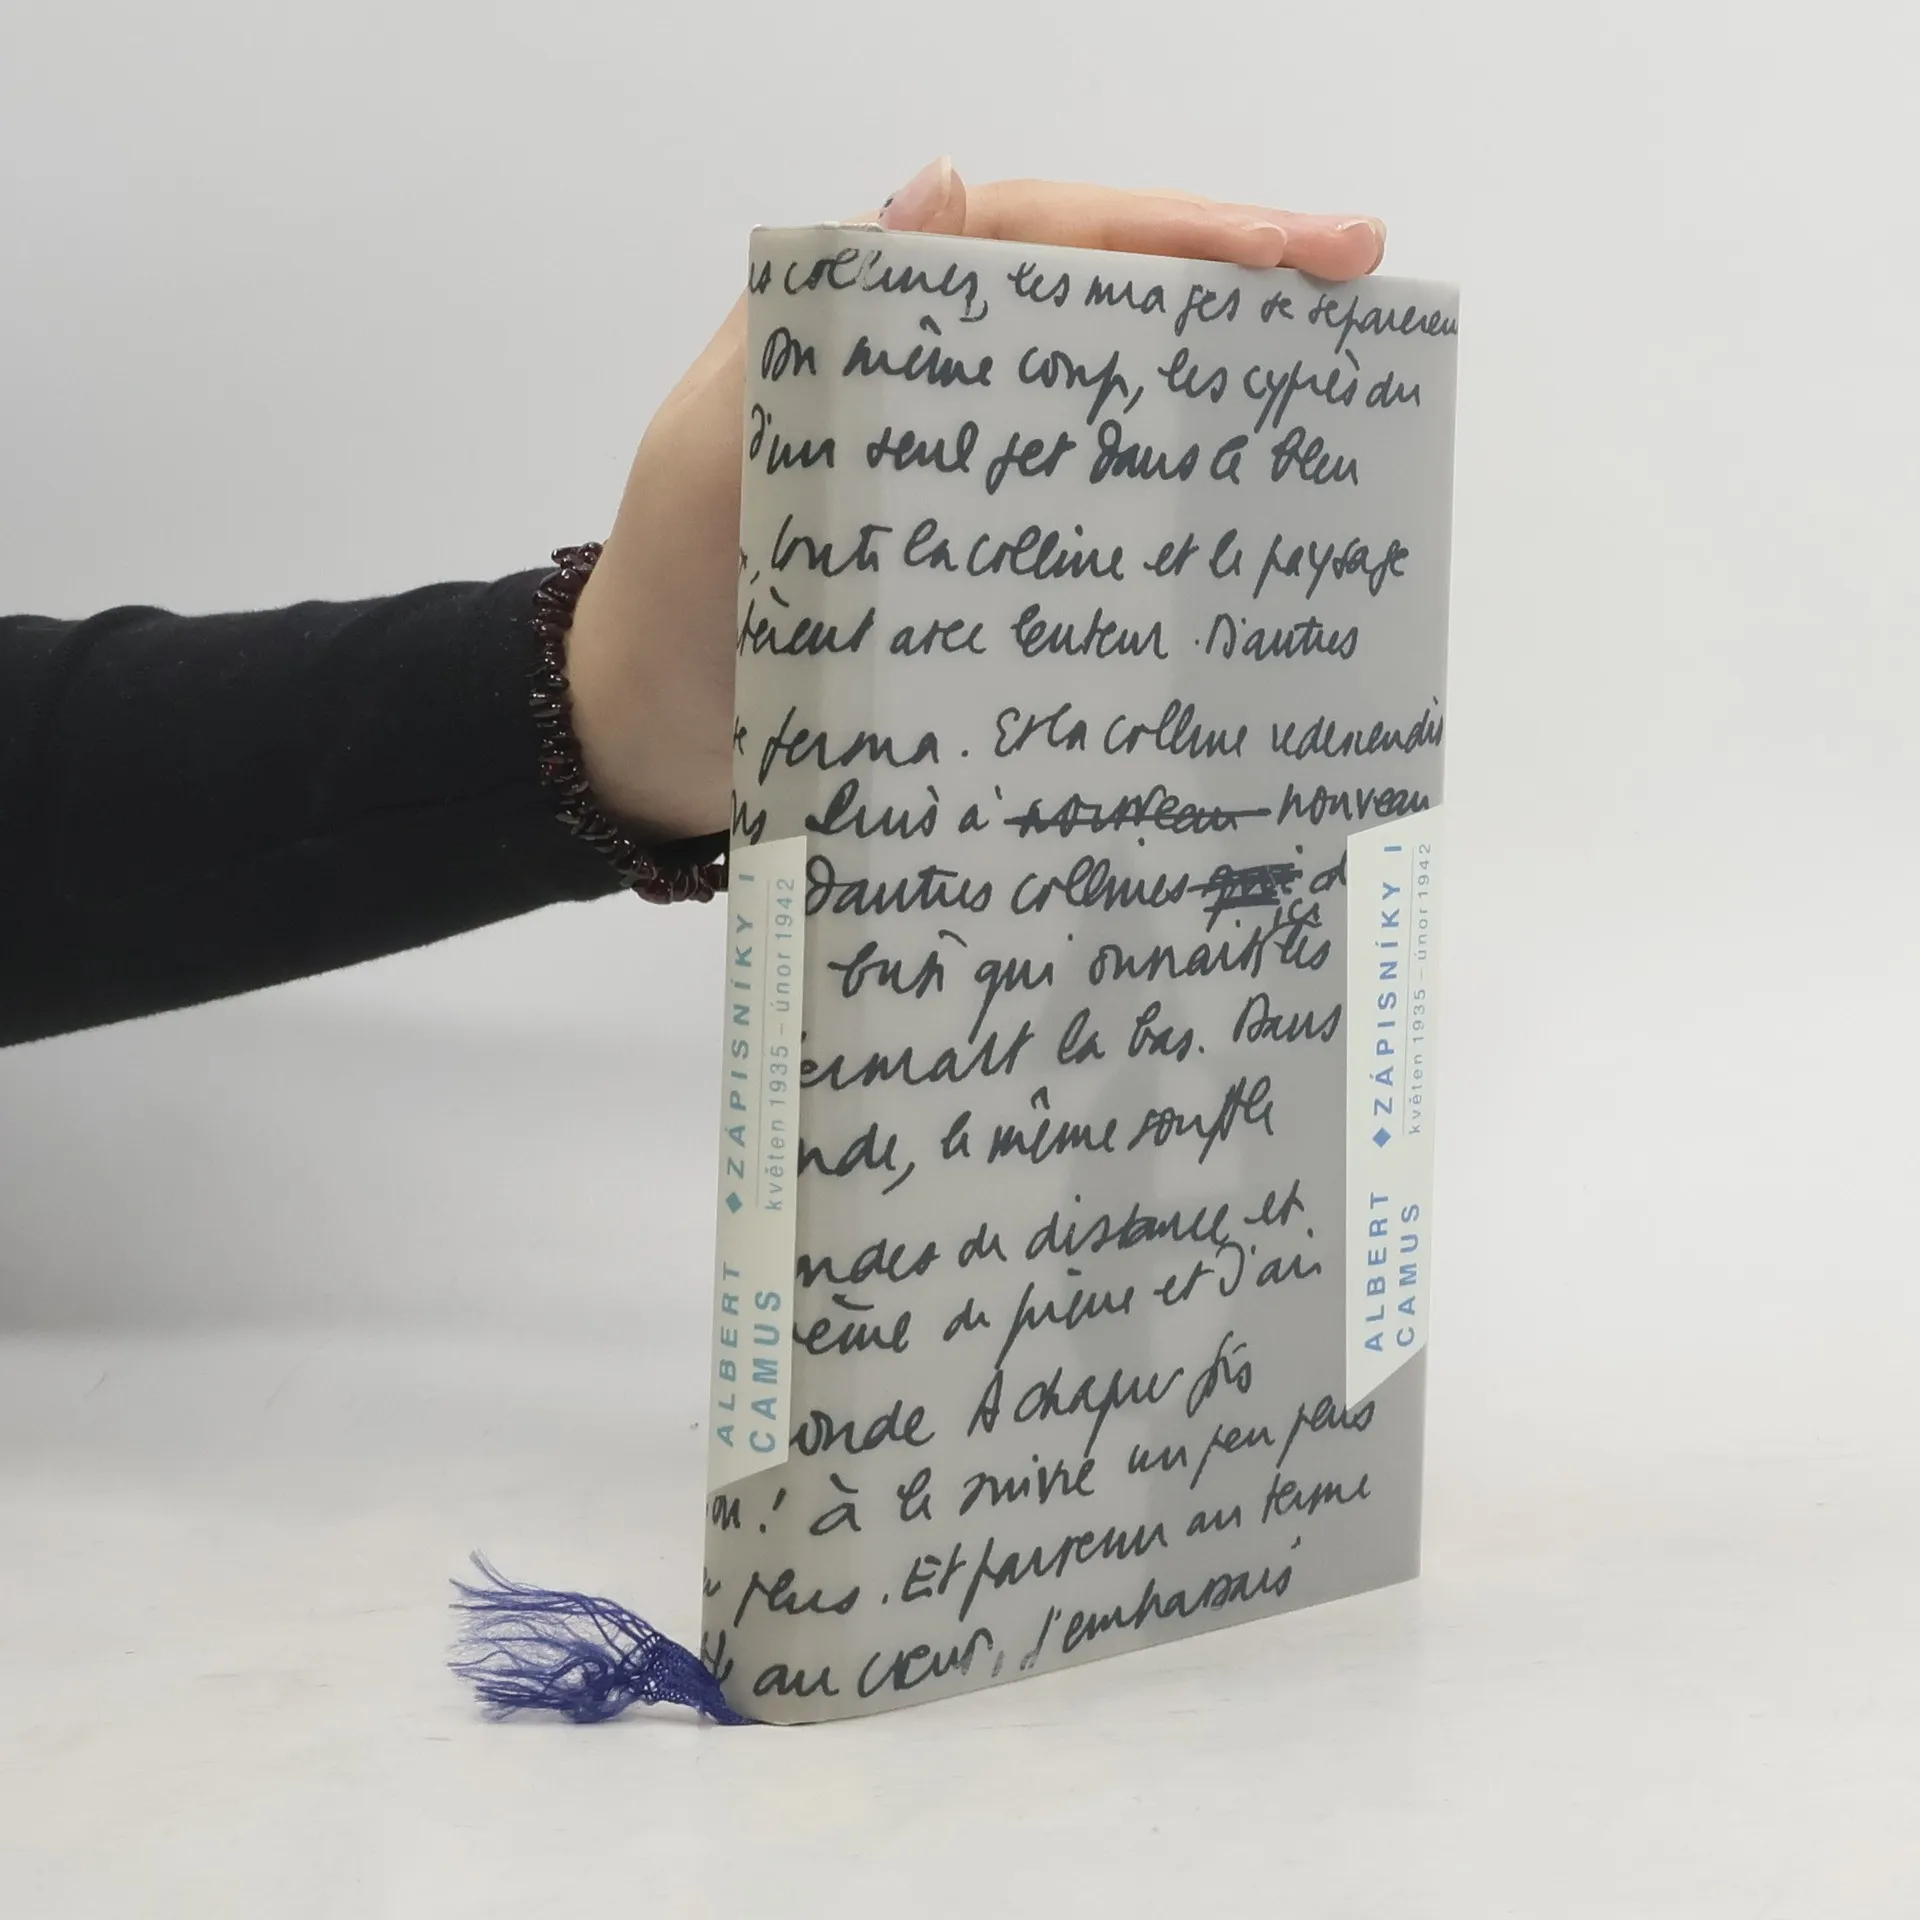 collines, les nuages se séparèren
Du même coup, les cyprès du
d'un seul jet dans le bleu
, toute la colline et le paysage
tèrent avec lenteur. D'autres
ferma. Et la colline redescendit
puis à nouveau nouveau
d'autres collines
qui ici les
ermait la bas. Dans
nde, le même souffle
ndes de distance et
ème de pierre et d'air
onde A chaque fois
on! à le suivre un peu plus
plus. Et parvenu au terme
au cœur, j'embrassais
ALBERT CAMUS ◆ ZÁPISNÍKY I
květen 1935 – únor 1942
ALBERT CAMUS ◆ ZÁPISNÍKY I
květen 1935 – únor 1942